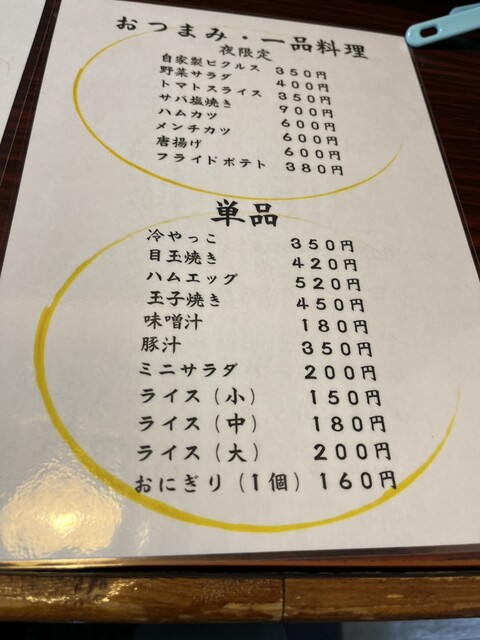 おつまみ・一品料理
夜限定
自家製ピクルス 350円
野菜サラダ 400円
トマトスライス 350円
サバ塩焼き 900円
ハムカツ 600円
メンチカツ 600円
唐揚げ 600円
フライドポテト 380円
単品
冷やっこ 350円
目玉焼き 420円
ハムエッグ 520円
玉子焼き 450円
味噌汁 180円
豚汁 350円
ミニサラダ 200円
ライス(小) 150円
ライス(中) 180円
ライス(大) 200円
おにぎり(1個) 160円